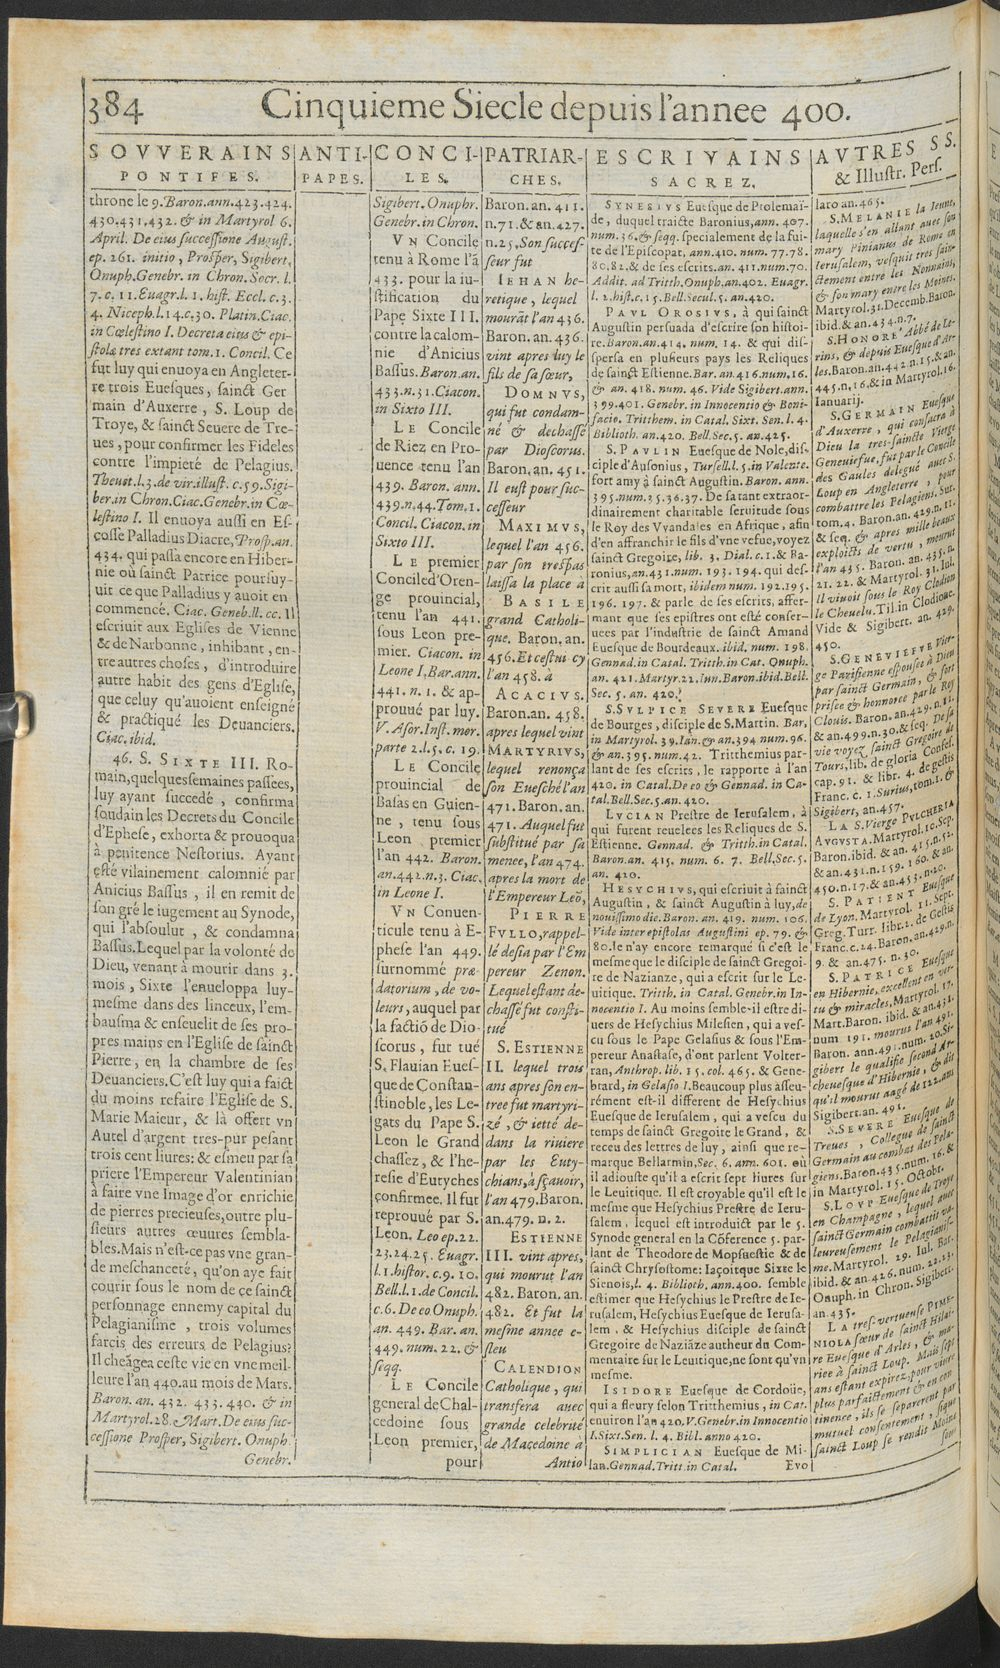 384 Cinquieme Siecle depuis l'annee 400.
SOVVERAINS
PONTIFES.
throne le 9. Baron. ann. 423. 424.
430. 431. 432. & in Martyrol 6.
April. De eius successione August.
ep. 261. initio, Prosper, Sigibert,
Onuph. Genebr. in Chron. Socr. l.
7. c. 11. Euagr. l. 1. hist. Eccl. c. 3.
4. Niceph. l. 14. c. 30. Platin. Ciac.
in Cœlestino I. Decreta eius & epi-
stolæ tres extant tom. 1. Concil. Ce
fut luy qui enuoya en Angleter-
re trois Euesques, sainct Ger
main d'Auxerre, S. Loup de
Troye, & sainct Seuere de Tre-
ues, pour confirmer les Fideles
contre l'impieté de Pelagius.
Theuet. l. 3. de vir. illust. c. 59. Sigi-
ber. in Chron. Ciac. Genebr. in Cœ-
lestino I. Il enuoya aussi en Es-
cosse Palladius Diacre, Prosp. an.
434. qui passa encore en Hiber-
nie où sainct Patrice poursuy-
uit ce que Palladius y auoit en
commencé. Ciac. Geneb. ll. cc. Il
escriuit aux Eglises de Vienne
& de Narbonne, inhibant, en-
tre autres choses, d'introduire
autre habit des gens d'Eglise,
que celuy qu'auoient enseigné
& practiqué les Deuanciers.
Ciac. ibid.
46. S. SIXTE III. Ro-
main, quelques semaines passées,
luy ayant succedé, confirma
soudain les Decrets du Concile
d'Ephese, exhorta & prouoqua
à penitence Nestorius. Ayant
esté vilainement calomnié par
Anicius Bassus, il en remit de
son gré le iugement au Synode,
qui l'absoulut, & condamna
Bassus. Lequel par la volonté de
Dieu, venant à mourir dans 3.
mois, Sixte l'enueloppa luy-
mesme dans des linceux, l'em-
bausma & enseuelit de ses pro-
pres mains en l'Eglise de sainct
Pierre, en la chambre de ses
Deuanciers. C'est luy qui a faict
du moins refaire l'Eglise de S.
Marie Maieur, & là offert vn
Autel d'argent tres-pur pesant
trois cent liures: & esmeu par sa
priere l'Empereur Valentinian
à faire vne Image d'or enrichie
de pierres precieuses, outre plu-
sieurs autres œuures sembla-
bles. Mais n'est-ce pas vne gran-
de meschanceté, qu'on aye fait
courir sous le nom de ce sainct
personnage ennemy capital du
Pelagianisme, trois volumes
farcis des erreurs de Pelagius?
Il cheãgea ceste vie en vne meil-
leure l'an 440. au mois de Mars.
Baron. an. 432. 433. 440. & in
Martyrol. 28. Mart. De eius suc-
cessione Prosper, Sigibert. Onuph.
Genebr.
ANTI-
PAPES.
CONCI-
LES.
Sigibert. Onuphr.
Genebr. in Chron.
VN Concile
tenu à Rome l'ã
433. pour la iu-
stification du
Pape Sixte III.
contre la calom-
nie d'Anicius
Bassus. Baron. an.
433. n. 31. Ciacon.
in Sixto III.
LE Concile
de Riez en Pro-
uence tenu l'an
439. Baron. ann.
439. n. 44. Tom. 1.
Concil. Ciacon. in
Sixto III.
LE premier
Concile d'Oren-
ge prouincial,
tenu l'an 441.
sous Leon pre-
mier. Ciacon. in
Leone I. Bar. ann.
441. n. 1. & ap-
prouué par luy.
V. Asor. Inst. mor.
parte 2. l. 5. c. 19.
LE Concile
prouincial de
Basas en Guien-
ne, tenu sous
Leon premier
l'an 442. Baron.
an. 442. n. 3. Ciac.
in Leone I.
VN Conuen-
ticule tenu à E-
phese l'an 449.
surnommé præ-
datorium, de vo-
leurs, auquel par
la factiõ de Dio-
scorus, fut tué
S. Flauian Eues-
que de Constan-
stinoble, les Le-
gats du Pape S.
Leon le Grand
chassez, & l'he-
resie d'Eutyches
confirmee. Il fut
reprouué par S.
Leon. Leo ep. 22.
23. 24. 25. Euagr.
l. 1. histor. c. 9. 10.
Bell. l. 1. de Concil.
c. 6. De eo Onuph.
an. 449. Bar. an.
449. num. 22. &
seqq.
LE Concile
general de Chal-
cedoine sous
Leon premier,
pour
PATRIAR-
CHES.
Baron. an. 411.
n. 71. & an. 427.
n. 25. Son succes-
seur fut
IEHAN he-
retique, lequel
mourãt l'an 436.
Baron. an. 436.
vint apres luy le
fils de sa sœur,
DOMNVS,
qui fut condam-
né & dechassé
par Dioscorus.
Baron. an. 451.
Il eust pour suc-
cesseur
MAXIMVS,
lequel l'an 456.
par son trespas
laissa la place à
BASILE
grand Catholi-
que. Baron. an.
456. Et cestui cy
l'an 458. à
ACACIVS.
Baron. an. 458.
apres lequel vint
MARTYRIVS,
lequel renonça
son Euesché l'an
471. Baron. an.
471. Auquel fut
substitué par sa
menee, l'an 474.
apres la mort de
l'Empereur Leõ,
PIERRE
FVLLO, rappel-
lé desia par l'Em
pereur Zenon.
Lequel estant de-
chassé fut consti-
tué
S. ESTIENNE
II. lequel trois
ans apres son en-
tree fut martyri-
zé, & ietté de-
dans la riuiere
par les Euty-
chians, à sçauoir,
l'an 479. Baron.
an. 479. n. 2.
ESTIENNE
III. vint apres,
qui mourut l'an
482. Baron. an.
482. Et fut la
mesme annee e-
sleu
CALENDION
Catholique, qui
transfera auec
grande celebrité
de Macedoine à
Antio
ESCRIVAINS
SACREZ.
SYNESIVS Euesque de Ptolemaï-
de, duquel traicte Baronius, ann. 407.
num. 36. & seqq. specialement de la fui-
te de l'Episcopat, ann. 410. num. 77. 78.
80. 82. & de ses escrits. an. 411. num. 70.
Addit. ad Tritth. Onuph. an. 402. Euagr.
l. 1. hist. c. 15. Bell. Secul. 5. an. 420.
PAVL OROSIVS, à qui sainct
Augustin persuada d'escrire son histoi-
re. Baron. an. 414. num. 14. & qui dis-
spersa en plusieurs pays les Reliques
de sainct Estienne. Bar. an. 416. num. 16.
& an. 418. num. 46. Vide Sigibert. ann.
399. 401. Genebr. in Innocentio & Boni-
facio. Tritthem. in Catal. Sixt. Sen. l. 4.
Biblioth. an. 420. Bell. Sec. 5. an. 425.
S. PAVLIN Euesque de Nole, dis-
ciple d'Ausonius, Tursell. l. 5. in Valente.
fort amy à sainct Augustin. Baron. ann.
395. num. 25. 36. 37. De sa tant extraor-
dinairement charitable seruitude sous
le Roy des Vvandales en Afrique, afin
d'en affranchir le fils d'vne vefue, voyez
sainct Gregoire, lib. 3. Dial. c. 1. & Ba-
ronius, an. 431. num. 193. 194. qui des-
crit aussi sa mort, ibidem num. 192. 195.
196. 197. & parle de ses escrits, affer-
mant que ses epistres ont esté conser-
uees par l'industrie de sainct Amand
Euesque de Bourdeaux. ibid. num. 198.
Gennad. in Catal. Tritth. in Cat. Onuph.
an. 421. Martyr. 22. Iun. Baron. ibid. Bell.
Sec. 5. an. 420.
S. SVLPICE SEVERE Euesque
de Bourges, disciple de S. Martin. Bar.
in Martyrol. 39. Ian. & an. 394 num. 96.
& an. 395. num. 42. Tritthemius par-
lant de ses escrits, le rapporte à l'an
420. in Catal. De eo & Gennad. in Ca-
tal. Bell. Sec. 5. an. 420.
LVCIAN Prestre de Ierusalem, à
qui furent reuelees les Reliques de S.
Estienne. Gennad. & Tritth. in Catal.
Baron. an. 415. num. 6. 7. Bell. Sec. 5.
an. 420.
HESYCHIVS, qui escriuit à sainct
Augustin, & sainct Augustin à luy, de
nouissimo die. Baron. an. 419. num. 106.
Vide inter epistolas Augustini ep. 79. &
80. Ie n'ay encore remarqué si c'est le
mesme que le disciple de sainct Gregoi-
re de Nazianze, qui a escrit sur le Le-
uitique. Tritth. in Catal. Genebr. in In-
nocentio I. Au moins semble-il estre di-
uers de Hesychius Milesien, qui a ves-
cu sous le Pape Gelasius & sous l'Em-
pereur Anastase, d'ont parlent Volter-
ran, Anthrop. lib. 15. col. 465. & Gene-
brard, in Gelasio I. Beaucoup plus asseu-
rément est-il different de Hesychius
Euesque de Ierusalem, qui a vescu du
temps de sainct Gregoire le Grand, &
receu des lettres de luy, ainsi que re-
marque Bellarmin, Sec. 6. ann. 601. où
il adiouste qu'il a escrit sept liures sur
le Leuitique. Il est croyable qu'il est le
mesme que Hesychius Prestre de Ieru-
salem, lequel est introduict par le 5.
Synode general en la Cõference 5. par-
lant de Theodore de Mopsuestie & de
sainct Chrysostome: Iaçoitque Sixte le
Sienois, l. 4. Biblioth. ann. 400. semble
estimer que Hesychius le Prestre de Ie-
rusalem, Hesychius Euesque de Ierusa-
lem, & Hesychius disciple de sainct
Gregoire de Naziãze autheur du Com-
mentaire sur le Leuitique, ne sont qu'vn
mesme.
ISIDORE Euesque de Cordoüe,
qui a fleury selon Tritthemius, in Cat.
enuiron l'an 420. V. Genebr. in Innocentio
I. Sixt. Sen. l. 4. Bibl. anno 420.
SIMPLICIAN Euesque de Mi-
lan. Gennad. Tritt. in Catal.
Evo
AVTRES SS.
& Illustr. Pers.
laro an. 465.
S. MELANIE la Ieune,
laquelle s'en allant auec son
mary Pinianus de Rome en
Ierusalem, vesquit tres sain-
ctement entre les Nonnains,
& son mary entre les Moines.
Martyrol. 31. Decemb. Baron.
ibid. & an. 434. n. 7.
S. HONORÉ Abbé de Le-
rins, & depuis Euesque d'Ar-
les. Baron. an. 442. n. 15. & an.
445. n. 16. & in Martyrol. 16.
Ianuarij.
S. GERMAIN Euesque
d'Auxerre, qui consacra à
Dieu la tres-saincte Vierge
Geneuiefue, fut par le Concile
des Gaules delegué auec S.
Loup en Angleterre, pour
combattre les Pelagiens. Sur.
tom. 4. Baron. an. 429. n. 11.
& seq. & apres mille beaux
exploicts de vertu, mourut
l'an 435. Baron. an. 435. n.
21. 22. & Martyrol. 31. Iul.
Il viuoit sous le Roy Clodion
le Cheuelu. Til. in Clodione.
Vide & Sigibert. an. 429.
450.
S. GENEVIEFVE Vier-
ge Parisienne espousee à Dieu
par sainct Germain, & fort
prisee & honnoree par le Roy
Clouis. Baron. an. 429. n. 11.
& an. 499. n. 30. & seq. De sa
vie voyez sainct Gregoire de
Tours, lib. de gloria Confes.
cap. 91. & libr. 4. de gestis
Franc. c. 1. Surius, tom. 1. &
Sigibert, an. 457.
LA S. Vierge PVLCHERIA
AVGVSTA. Martyrol. 10. Sep.
Baron. ibid. & an. 415. n. 52.
& an. 431. n. 159. 160. & an.
450. n. 17. & an. 453. n. 20.
S. PATIENT Euesque
de Lyon. Martyrol. 11. Sept.
Greg. Turr. libr. 2. de Gestis
Franc. c. 24. Baron. an. 429. n.
9. & an. 475. n. 30.
S. PATRICE Euesque
en Hibernie, excellent en ver-
tu & miracles, Martyrol. 17.
Mart. Baron. ibid. & an. 431.
num 191. mourut l'an 491.
Baron. ann. 491. num. 20. Si-
gibert le qualifie second Ar-
cheuesque d'Hibernie, & dit
qu'il mourut aagé de 122. ans
Sigibert. an. 491.
S. SEVERE Euesque de
Treues, Collegue de sainct
Germain au combat des Pela-
giens. Baron. 435. num. 16. &
in Martyrol. 15. Octobr.
S. LOVP Euesque de Troye
en Champagne, lequel auec
sainct Germain combattit va-
leureusement le Pelagianis-
me. Martyrol. 29. Iul. Bar.
ibid. & an. 426. num. 22. 23.
Onuph. in Chron. Sigibert.
an. 435.
LA tres-vertueuse PIME-
NIOLA sœur de sainct Hilai-
re Euesque d'Arles, & ma-
riee à sainct Loup. Mais sept
ans estant expirez, pour viure
plus parfaictement & en con
tinence, ils se separerent par
mutuel consentement, si que
sainct Loup se rendit Moine
sous